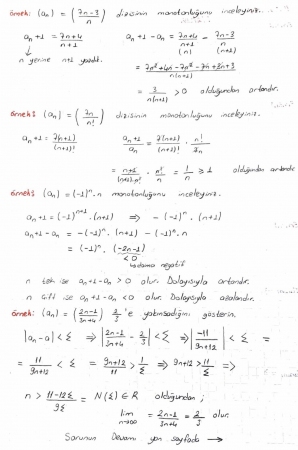 örnek: (an) = (7n-3 / n) dizisinin monotonluğunu inceleyiniz.
an+1 = 7n+4 / n+1    an+1 - an = 7n+4 / n+1 - 7n-3 / n
(n)    (n+1)
n yerine n+1 yazdık.    = 7n²+4n-7n²-7n+3n+3 / n(n+1)
= 3 / n(n+1) > 0 olduğundan artandır.
örnek: (an) = (7n / n!) dizisinin monotonluğunu inceleyiniz.
an+1 = 7(n+1) / (n+1)!    an+1 / an = 7(n+1) / (n+1)! · n! / 7n
= n+1 / (n+1)·n! · n! / n = 1 / n ≥ 1 olduğundan artandır
örnek: (an) = (-1)ⁿ·n monotonluğunu inceleyiniz.
an+1 = (-1)ⁿ⁺¹·(n+1) ⇒ -(-1)ⁿ·(n+1)
an+1 - an = -(-1)ⁿ·(n+1) - (-1)ⁿ·n
= (-1)ⁿ·(-2n-1)
< 0
negatif
n tek ise an+1 - an > 0 olur. Dolayısıyla artandır.
n çift ise an+1 - an < 0 olur. Dolayısıyla azalandır.
örnek: (an) = (2n-1 / 3n+4) 2/3 'e yakınsadığını gösterin.
|an - a| < ε ⇒ |2n-1 / 3n+4 - 2/3| < ε ⇒ |-11 / 9n+12| < ε =
= 11 / 9n+12 < ε = 9n+12 / 11 > 1/ε ⇒ 9n+12 > 11/ε ⇒
n > 11-12ε / 9ε = N(ε) ∈ R olduğundan;
lim n→∞ = 2n-1 / 3n+4 = 2/3 olur.
Sorunun Devamı yan sayfada →